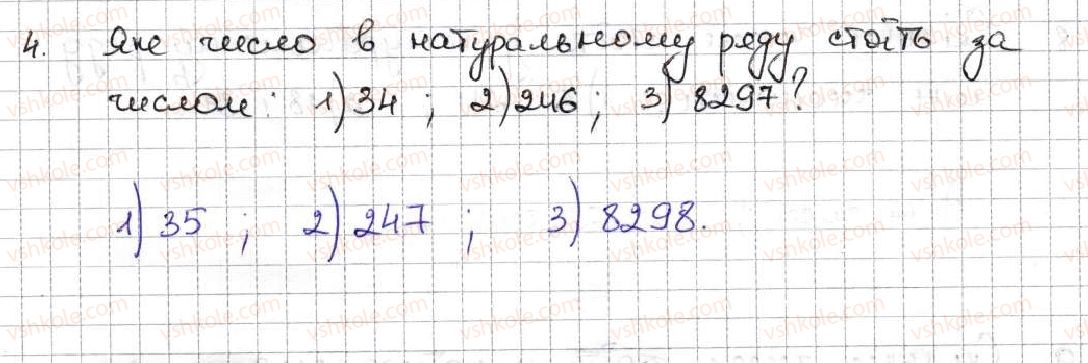 4. Яке число в натуральному ряду стоїть за
числом: 1) 34 ; 2) 246 ; 3) 8297 ?
1) 35 ; 2) 247 ; 3) 8298.